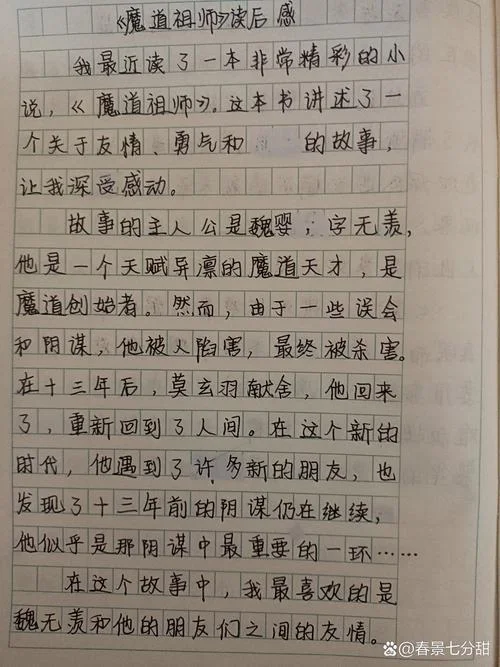 《魔道祖师》读后感
我最近读了一本非常精彩的小
说，《魔道祖师》。这本书讲述了一
个关于友情、勇气和 的故事，
让我深受感动。
故事的主人公是魏婴；字无羡，
他是一个天赋异凛的魔道天才，是
魔道创始者。然而，由于一些误会
和阴谋，他被人陷害，最终被杀害。
在十三年后，莫玄羽献舍，他回来
了，重新回到了人间。在这个新的
时代，他遇到了许多新的朋友，也
发现了十三年前的阴谋仍在继续，
他似乎是那阴谋中最重要的一环……
在这个故事中，我最喜欢的是
魏无羡和他的朋友们之间的友情。
春景七分甜